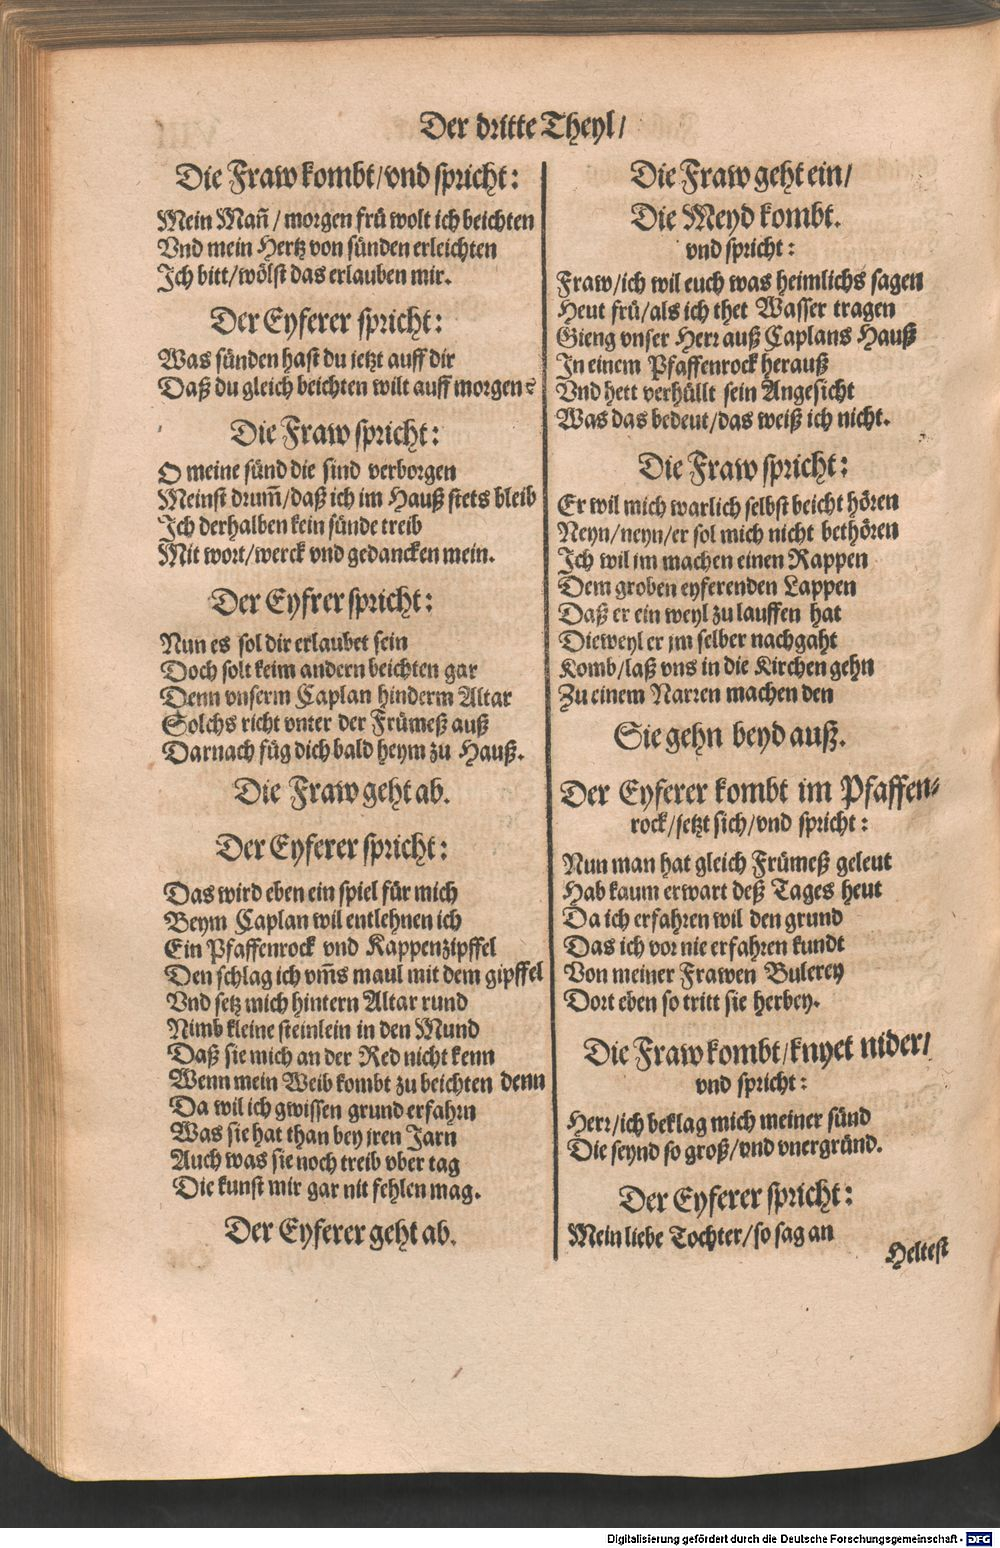 Der dritte Theyl/
Die Fraw kombt/vnd spricht:
Mein Mañ / morgen frü wolt ich beichten
Vnd mein Hertz von sünden erleichten
Ich bitt/wölst das erlauben mir.
Der Eyferer spricht:
Was sünden hast du ietzt auff dir
Daß du gleich beichten wilt auff morgen?
Die Fraw spricht:
O meine sünd die sind verborgen
Meinst drum̃/daß ich im Hauß stets bleib
Ich derhalben kein sünde treib
Mit wort/werck vnd gedancken mein.
Der Eyfrer spricht:
Nun es sol dir erlaubet sein
Doch solt keim andern beichten gar
Denn vnserm Caplan hinderm Altar
Solchs richt vnter der Frümeß auß
Darnach füg dich bald heym zu Hauß.
Die Fraw geht ab.
Der Eyferer spricht:
Das wird eben ein spiel für mich
Beym Caplan wil entlehnen ich
Ein Pfaffenrock vnd Kappenzipffel
Den schlag ich vm̃s maul mit dem gipffel
Vnd setz mich hintern Altar rund
Nimb kleine steinlein in den Mund
Daß sie mich an der Red nicht kenn
Wenn mein Weib kombt zu beichten denn
Da wil ich gwissen grund erfahrn
Was sie hat than bey jren Jarn
Auch was sie noch treib vber tag
Die kunst mir gar nit fehlen mag.
Der Eyferer geht ab.
Die Fraw geht ein/
Die Meyd kombt.
vnd spricht:
Fraw/ich wil euch was heimlichs sagen
Heut frü/als ich thet Wasser tragen
Gieng vnser Herr auß Caplans Hauß
In einem Pfaffenrock herauß
Vnd hett verhüllt sein Angesicht
Was das bedeut/das weiß ich nicht.
Die Fraw spricht:
Er wil mich warlich selbst beicht hören
Neyn/neyn/er sol mich nicht bethören
Ich wil jm machen einen Rappen
Dem groben eyferenden Lappen
Daß er ein weyl zu lauffen hat
Dieweyl er jm selber nachgaht
Komb/laß vns in die Kirchen gehn
Zu einem Narren machen den
Sie gehn beyd auß.
Der Eyferer kombt im Pfaffen-
rock/setzt sich/vnd spricht:
Nun man hat gleich Frümeß geleut
Hab kaum erwart deß Tages heut
Da ich erfahren wil den grund
Das ich vor nie erfahren kundt
Von meiner Frawen Bulerey
Dort eben so tritt sie herbey.
Die Fraw kombt/knyet nider/
vnd spricht:
Herr/ich beklag mich meiner sünd
Die seynd so groß/vnd vnergründ.
Der Eyferer spricht:
Mein liebe Tochter/so sag an
Heltest
Digitalisierung gefördert durch die Deutsche Forschungsgemeinschaft - DFG